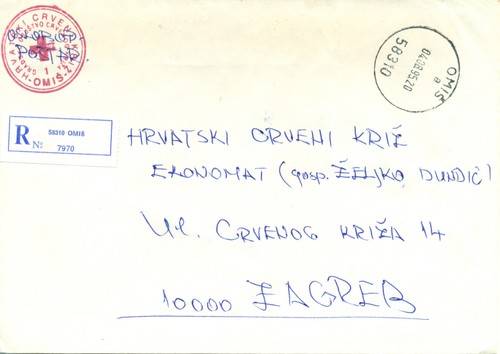 HRVATSKI CRVENI KRIŽ
OSLOB. OD
POŠTAR.
1
OMIŠ
a
04.08.95.20
58310
R
58310 OMIŠ
No
7970
HRVATSKI CRVENI KRIŽ
EKONOMAT (gosp. ŽELJKO DUNDIĆ)
Ul. CRVENOG KRIŽA 14
10000 ZAGREB